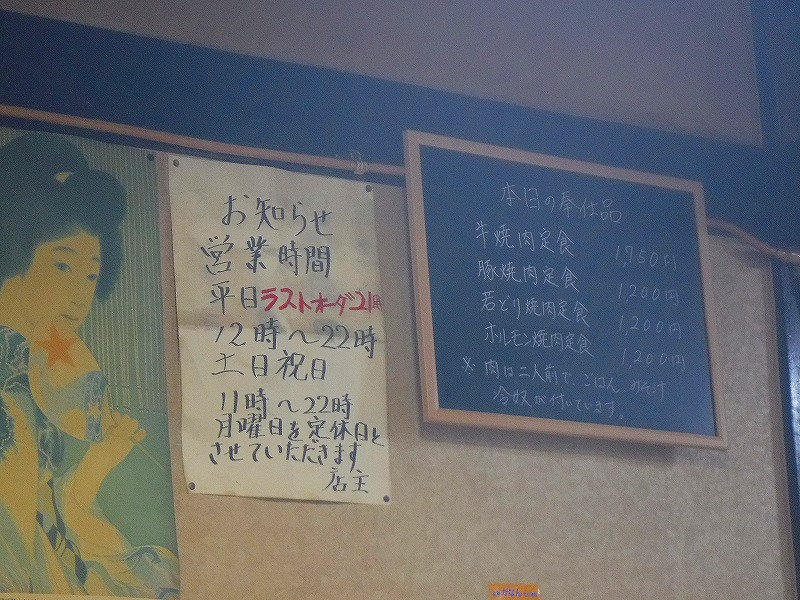 お知らせ
営業時間
平日ラストオーダ21時
12時〜22時
土日祝日
11時〜22時
月曜日を定休日と
させていただきます
店主
本日の奉仕品
牛焼肉定食 1,750円
豚焼肉定食 1,200円
若どり焼肉定食 1,200円
ホルモン焼肉定食 1,200円
※肉は二人前で、ごはん みそ汁
が付いています。